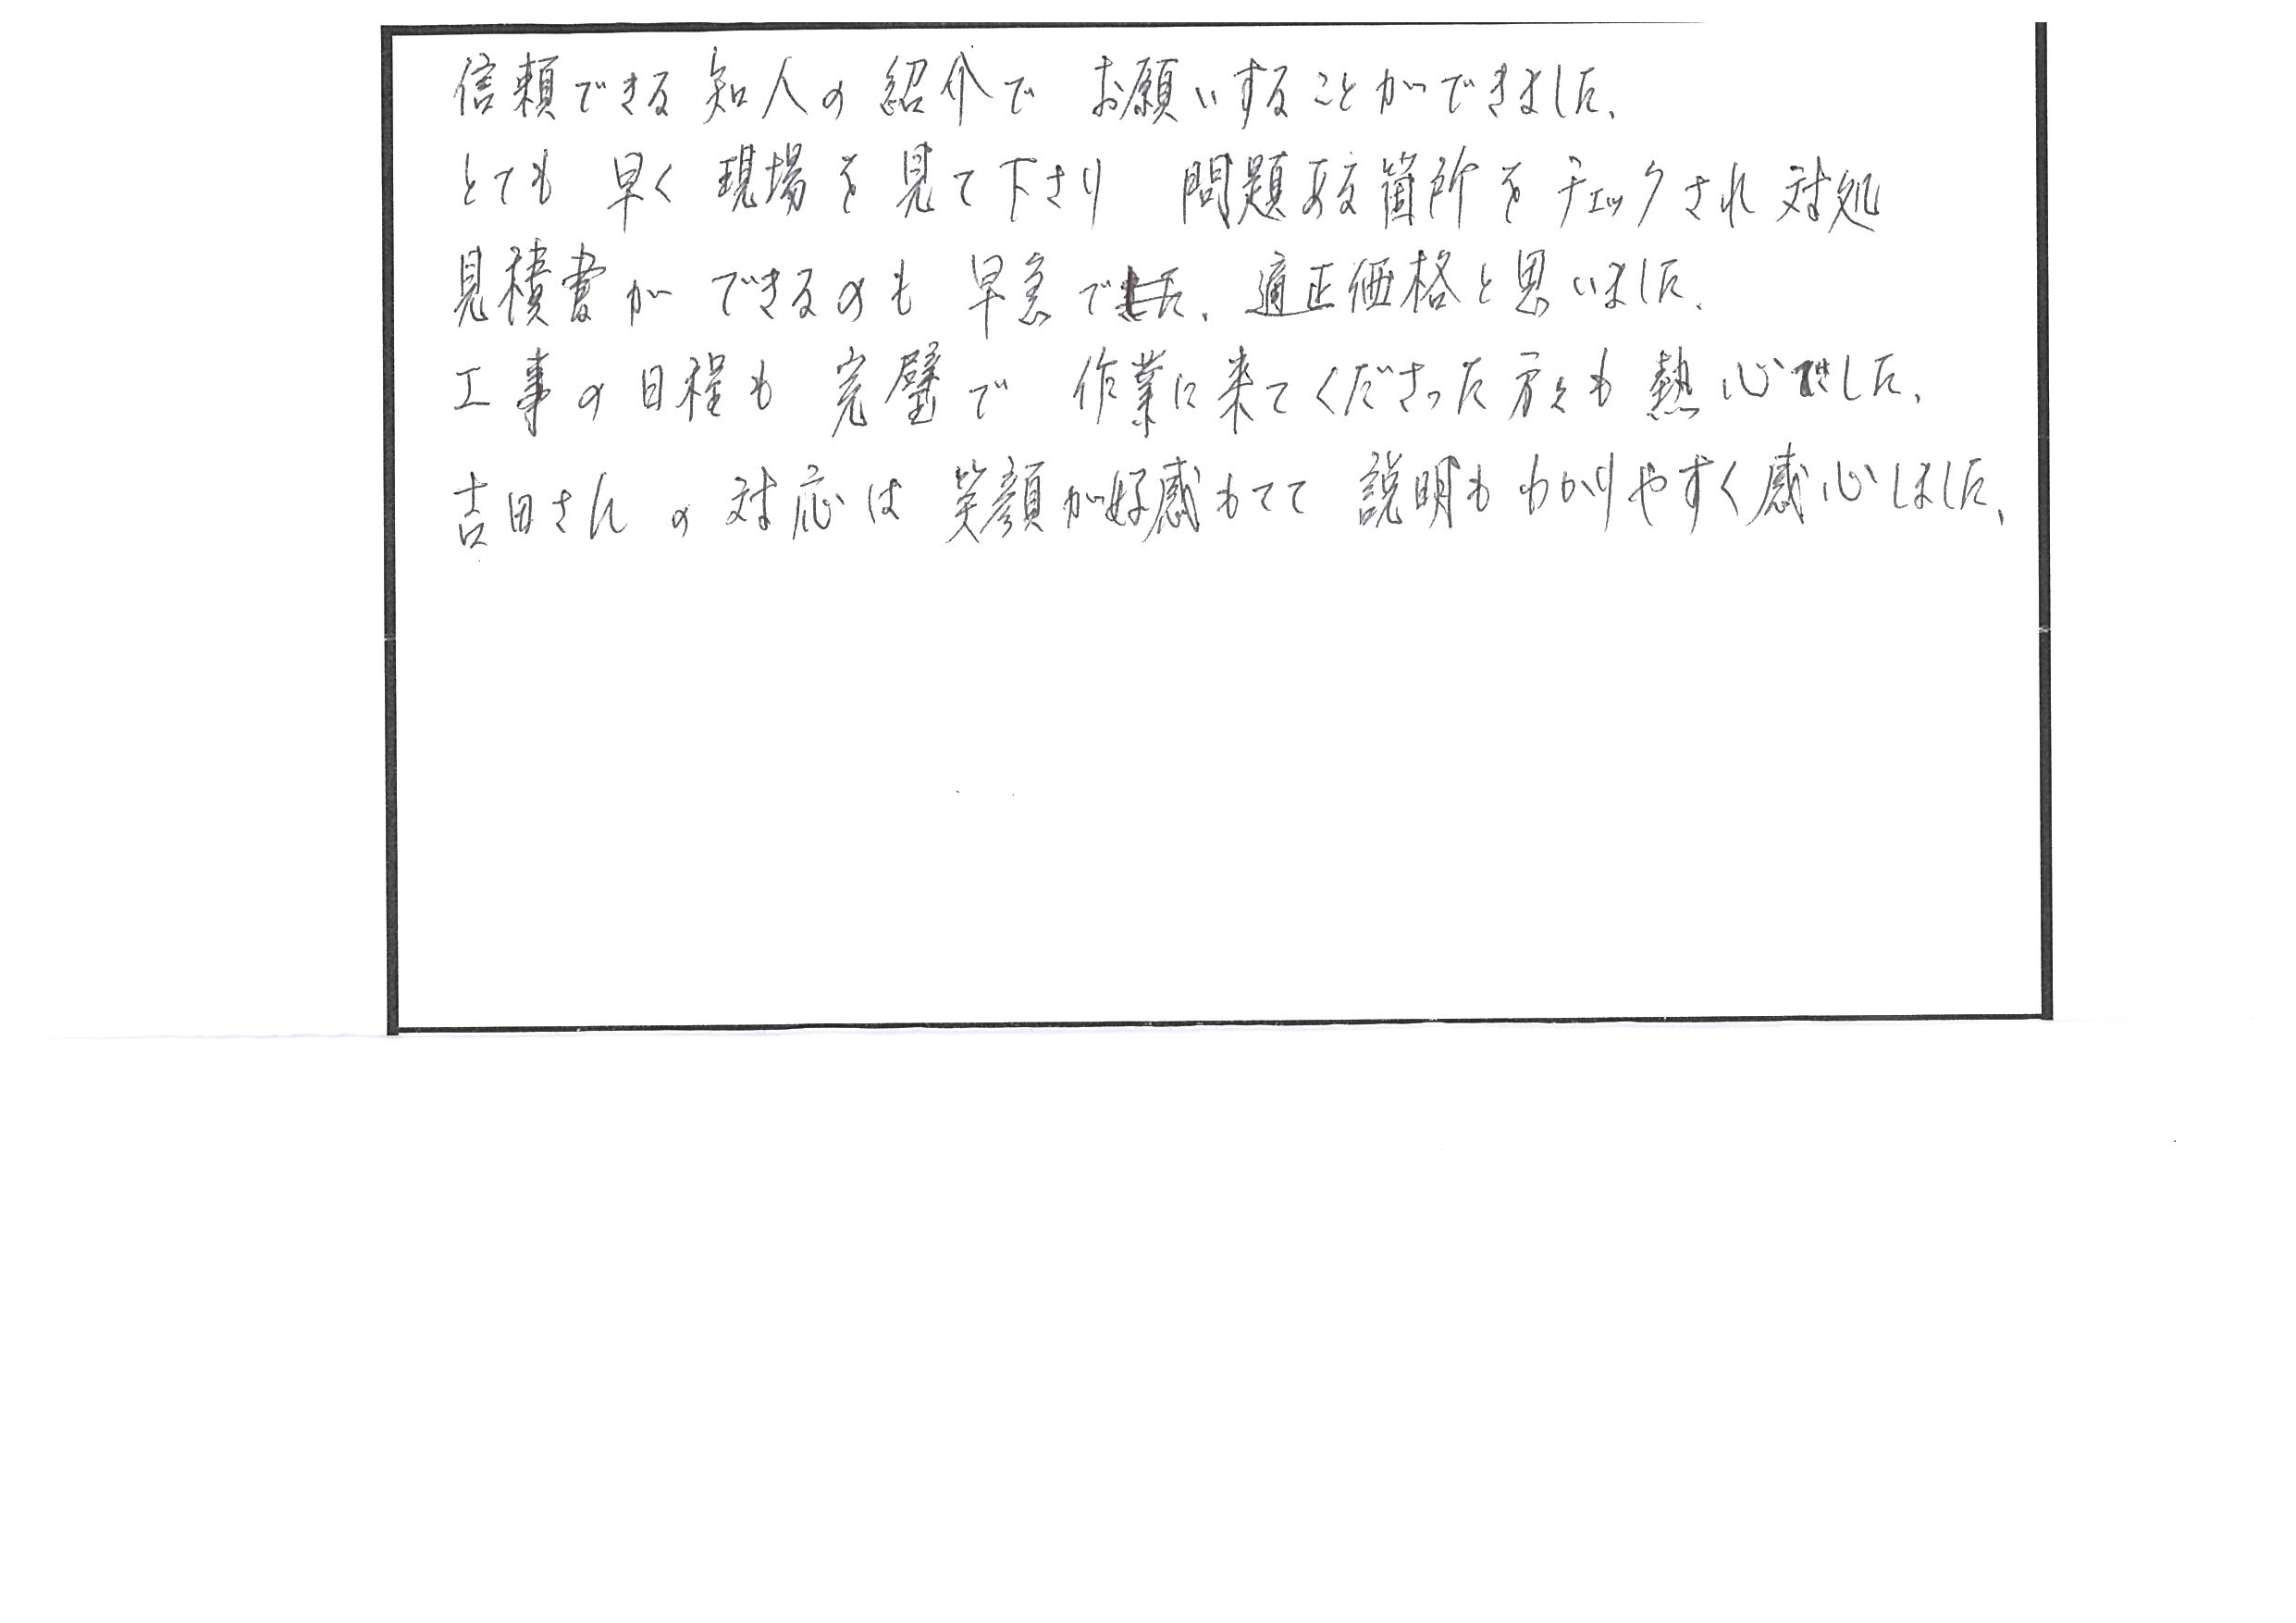 信頼できる知人の紹介で お願いすることができました。
とても 早く 現場を見て下さり 問題ある箇所をチェックされ 対処
見積書が できるのも 早急でした。適正価格と思いました。
工事の日程も 完璧で 作業に来てくださった方々も 熱心でした。
吉田さん の 対応は 笑顔が好感もてて 説明も わかりやすく感心しました。